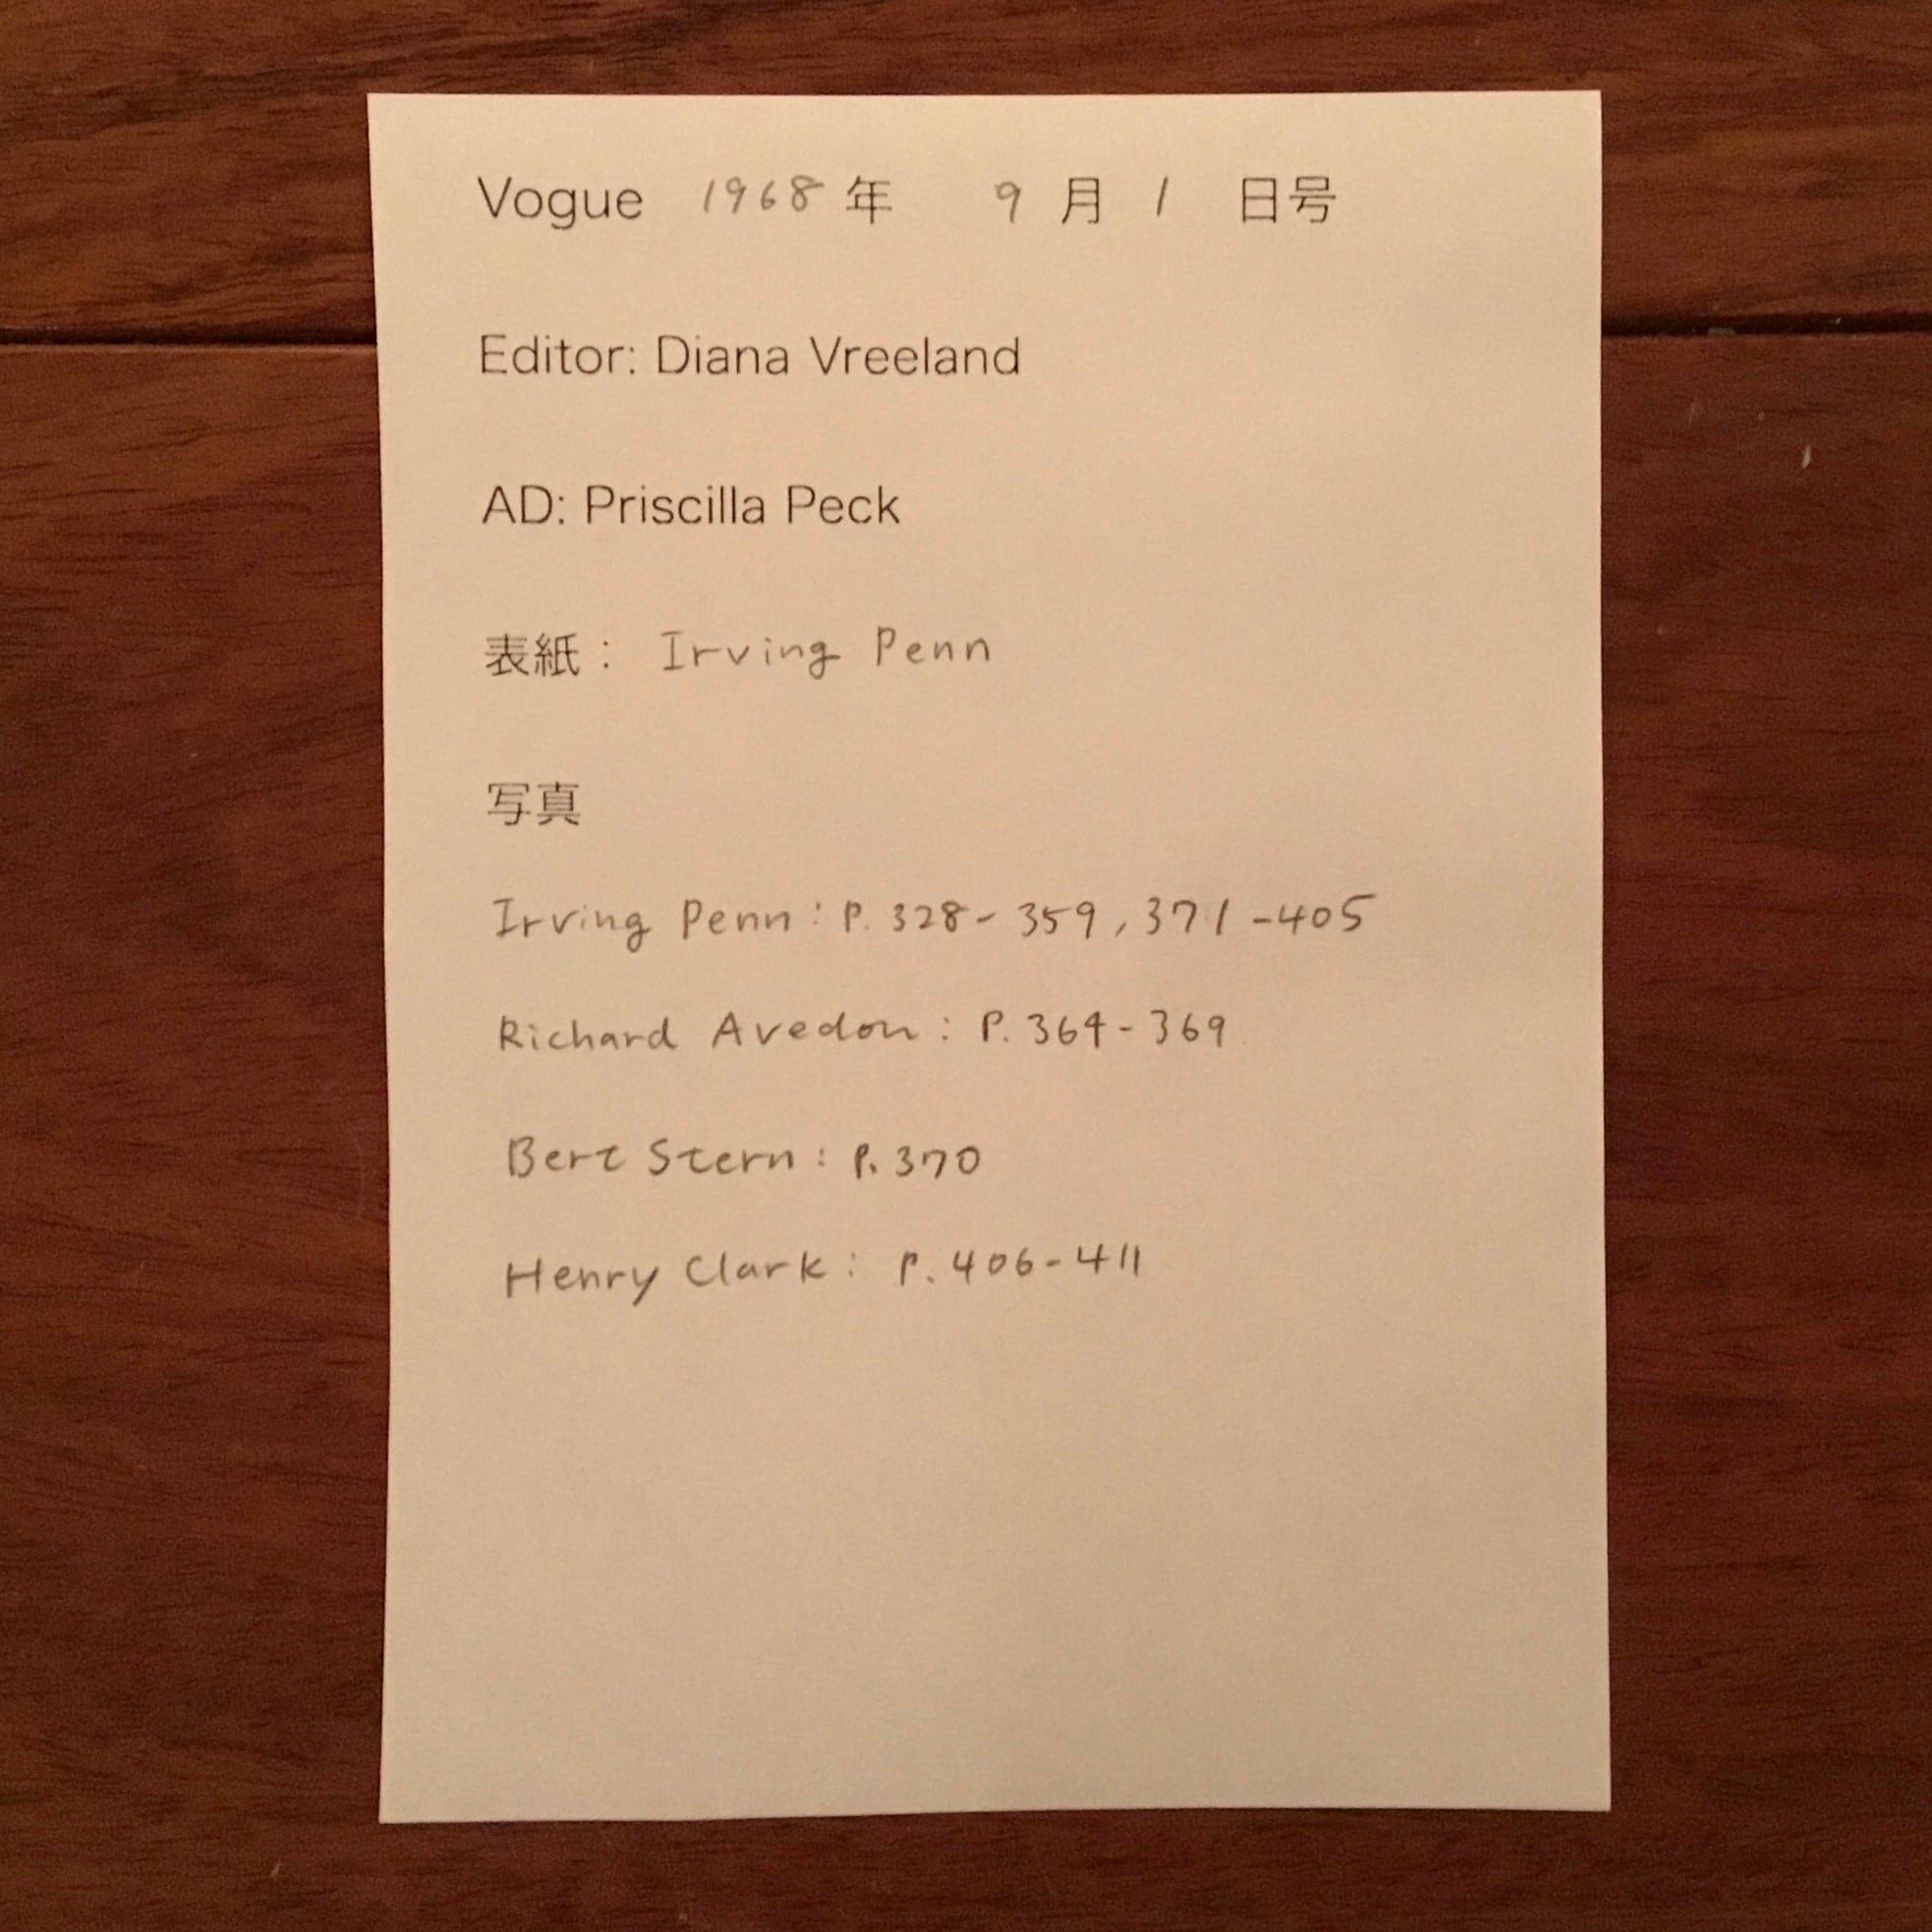 Vogue 1968 年 9 月 1 日号
Editor: Diana Vreeland
AD: Priscilla Peck
表紙： Irving Penn
写真
Irving Penn : P. 328 - 359, 371 - 405
Richard Avedon : P. 364 - 369
Bert Stern : P. 370
Henry Clark : P. 406 - 411